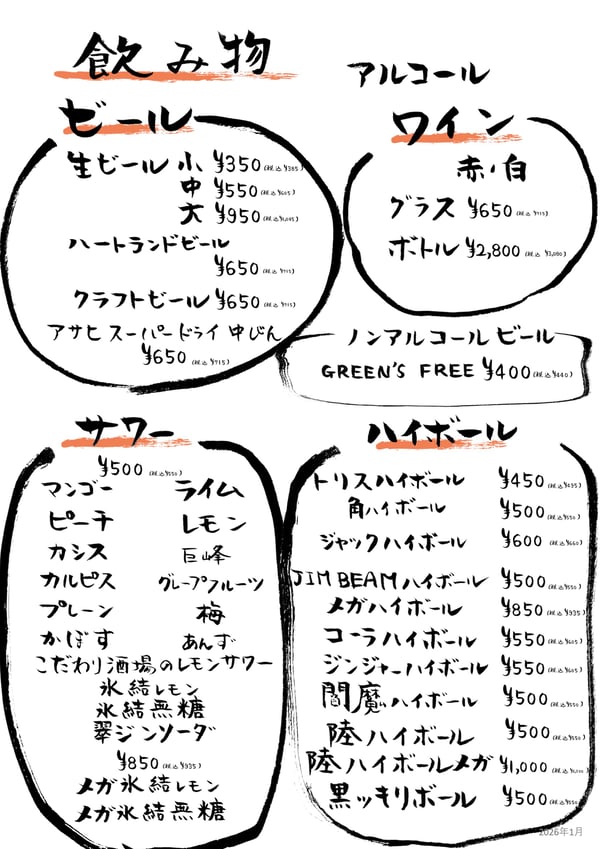 飲み物
アルコール
ビール
生ビール 小 ¥350(税込¥385)
中 ¥550(税込¥605)
大 ¥950(税込¥1,045)
ハートランドビール
¥650(税込¥715)
クラフトビール ¥650(税込¥715)
アサヒ スーパードライ 中びん
¥650(税込¥715)
ワイン
赤・白
グラス ¥650(税込¥715)
ボトル ¥2,800(税込¥3,080)
ノンアルコール ビール
GREEN'S FREE ¥400(税込¥440)
サワー
¥500(税込¥550)
マンゴー ライム
ピーチ レモン
カシス 巨峰
カルピス グレープフルーツ
プレーン 梅
かぼす あんず
こだわり酒場のレモンサワー
氷結レモン
氷結無糖
翠ジンソーダ
¥850(税込¥935)
メガ氷結レモン
メガ氷結無糖
ハイボール
トリスハイボール ¥450(税込¥495)
角ハイボール ¥500(税込¥550)
ジャックハイボール ¥600(税込¥660)
JIM BEAMハイボール ¥500(税込¥550)
メガハイボール ¥850(税込¥935)
コーラハイボール ¥550(税込¥605)
ジンジャーハイボール ¥550(税込¥605)
閻魔ハイボール ¥500(税込¥550)
陸ハイボール ¥500(税込¥550)
陸ハイボールメガ ¥1,000(税込¥1,100)
黒ッキリボール ¥500(税込¥550)
2026年1月